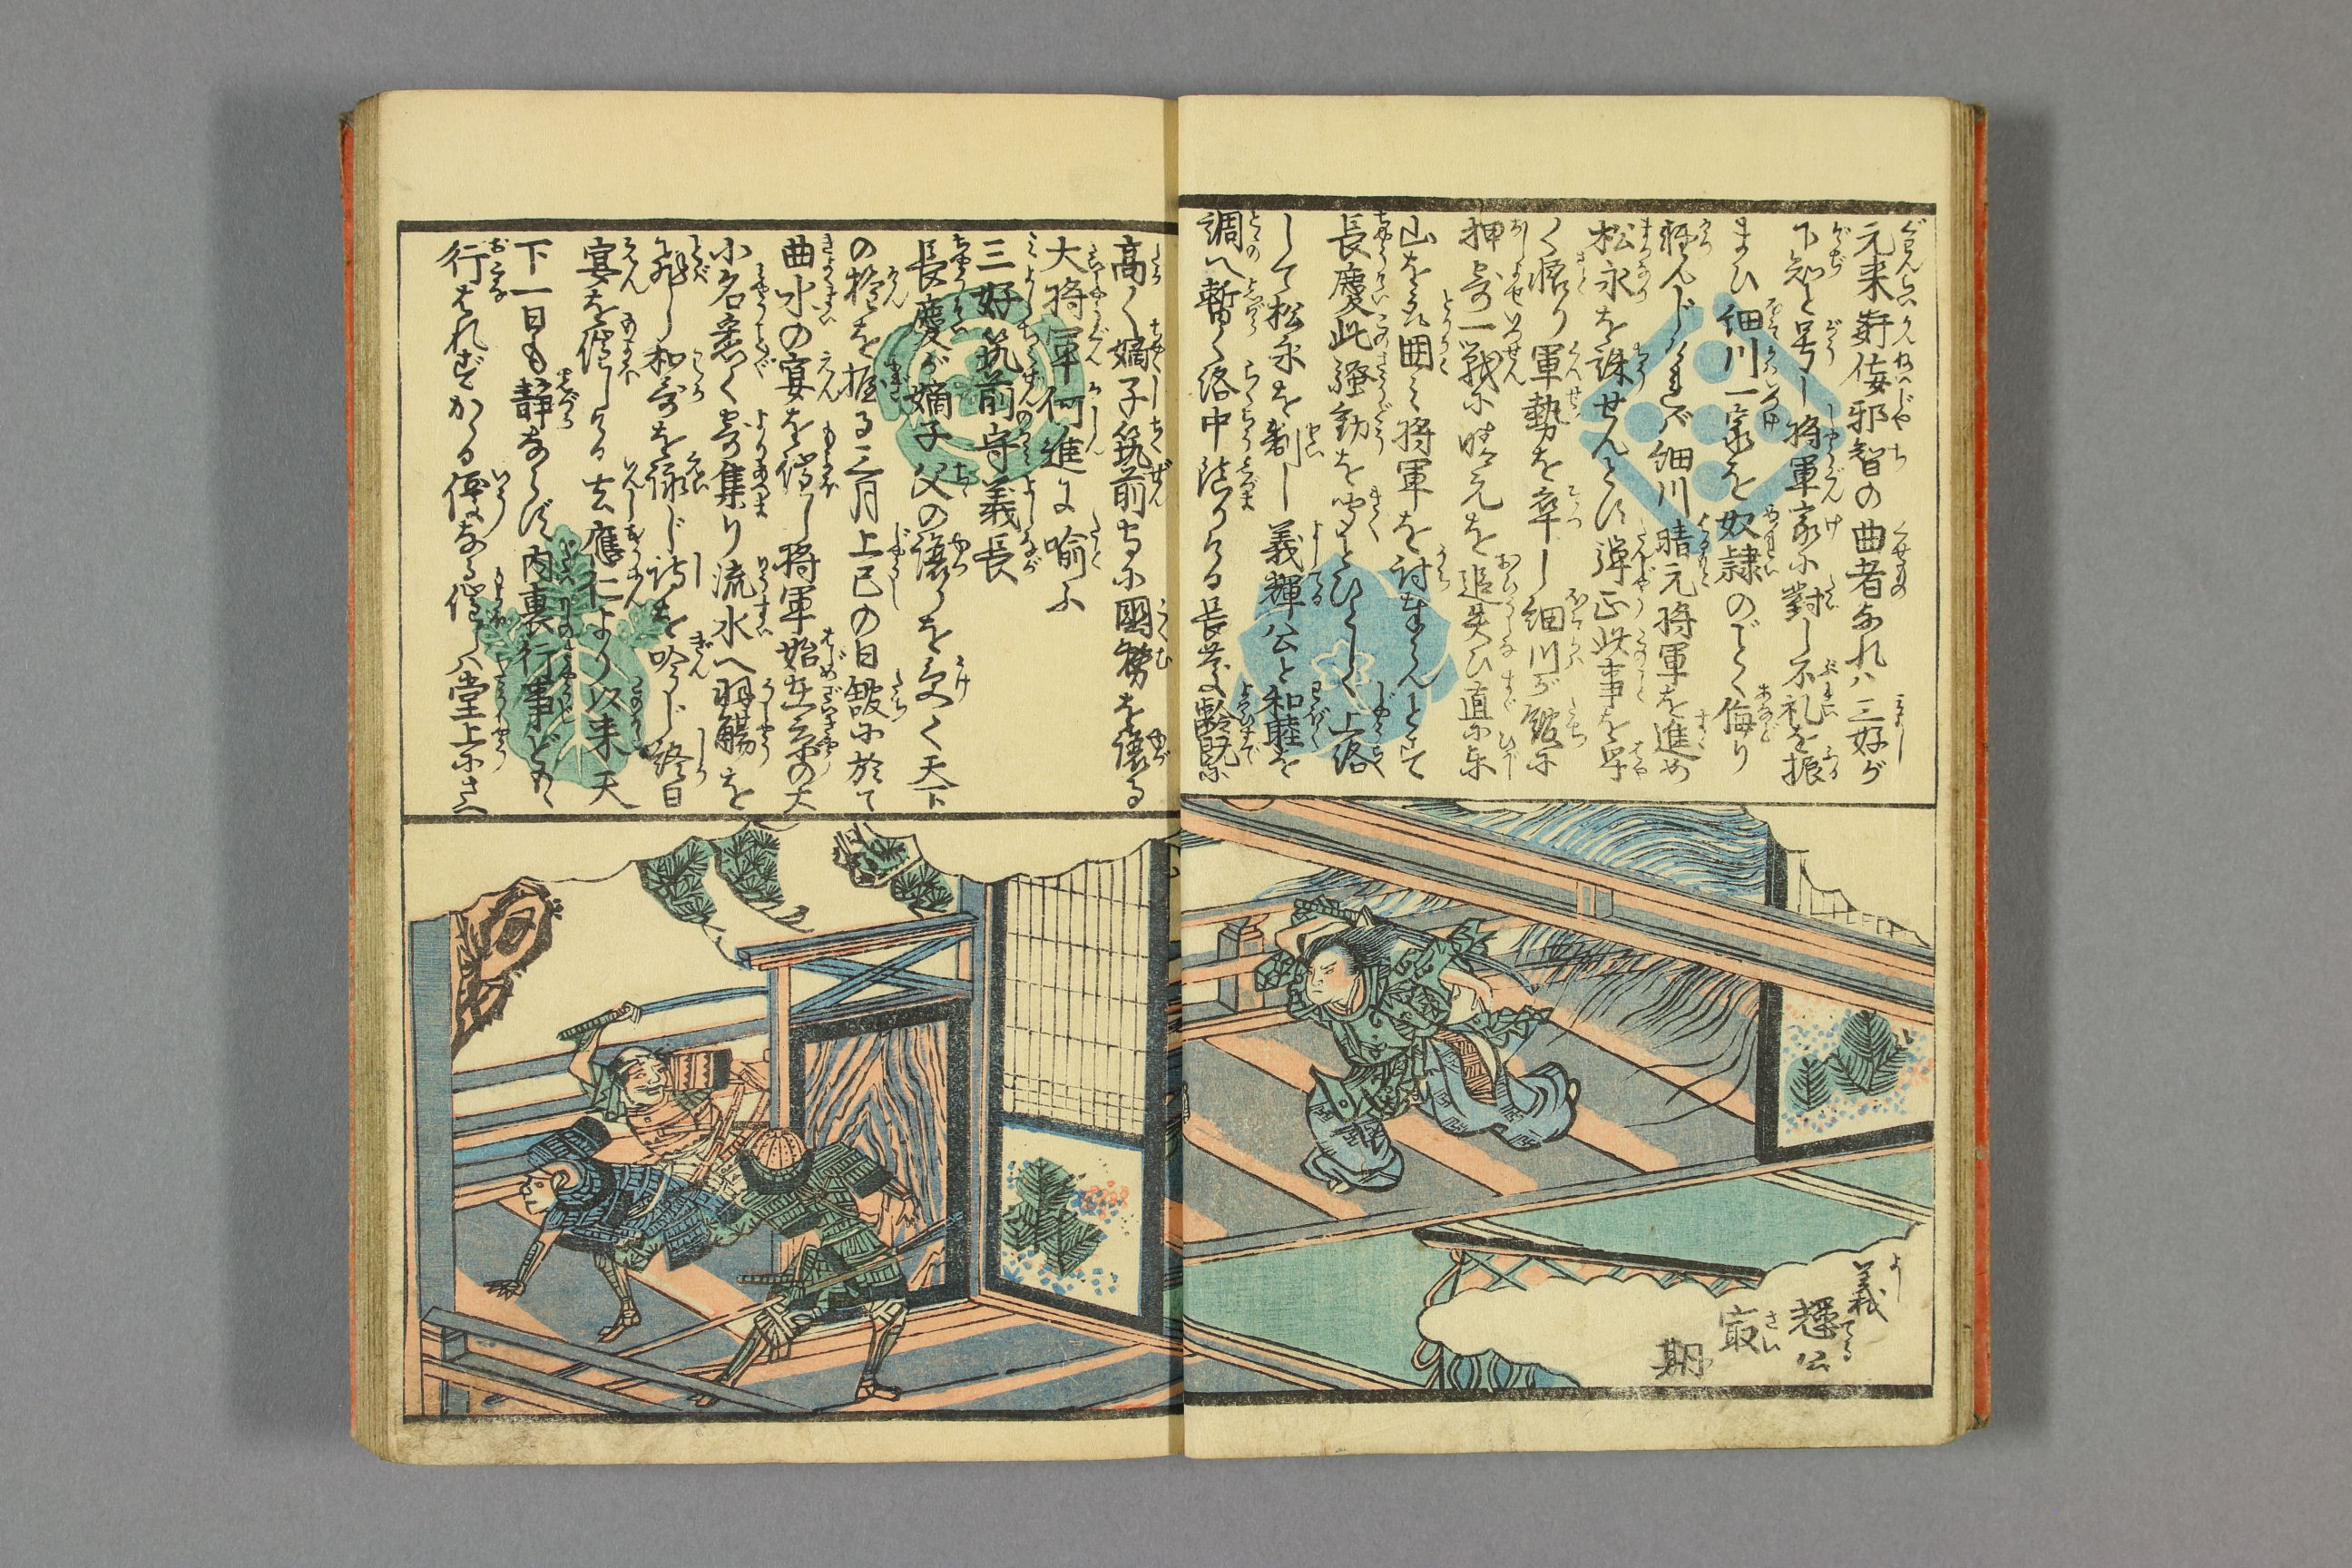 元来奸侫邪智の曲者なれハ三好が
下知と号し将軍家に對し不礼を振
まひ細川一家を奴隷のごとく侮り
軽んじければ細川晴元将軍を進め
松永を誅せんとす弾正此事を早
く悟り軍勢を卒し細川が舘に
押寄一戦に晴元を追失ひ直に東
山を取囲ミ将軍を討奉らんとて
長慶此騒動を聞とひとしく上洛
して松永を制し義輝公と和睦を
調へ暫く洛中治りける長慶齢既に
高く嫡子筑前守に國務を譲る
大将軍何進に喩ふ
三好筑前守義長
長慶が嫡子父の譲りを受く天下
の権を握る三月上巳の日舘に於て
曲水の宴を催し将軍始在京の大
小名悉く寄集り流水へ羽觴を
飛し和哥を詠じ詩を吟じ終日
宴を催しける去應仁より以来天
下一日も静ならず内裏行事ども
行はれざかる優なる催し堂上にさへ
義輝公
最
期